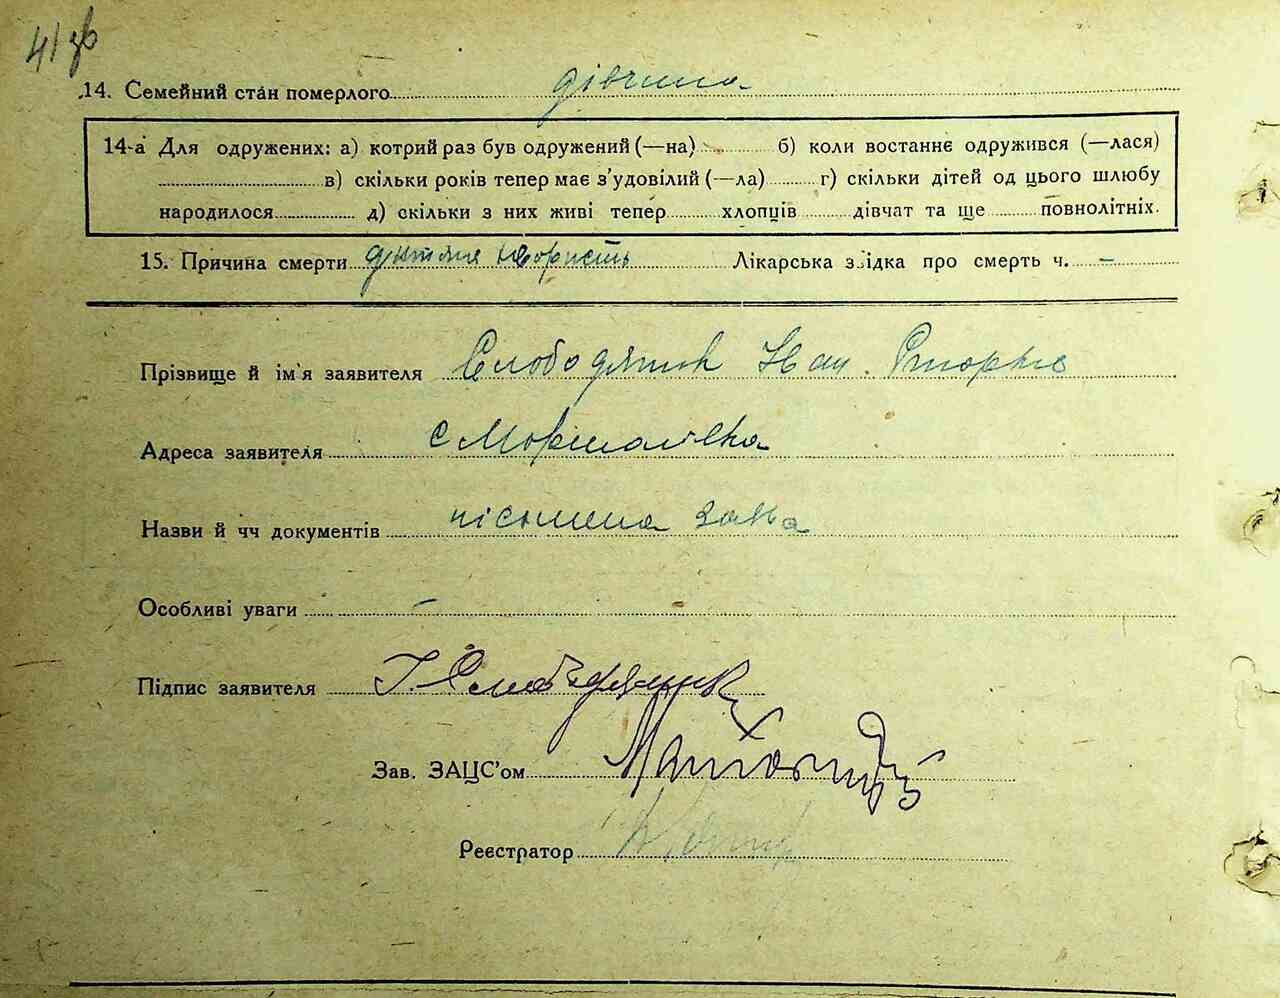 41 зв
14. Семейний стан померлого дівчина
14-а Для одружених: а) котрий раз був одружений (—на) б) коли востаннє одружився (—лася)
в) скільки років тепер має з'удовілий (—ла) г) скільки дітей од цього шлюбу
народилося д) скільки з них живі тепер хлопців дівчат та ще повнолітніх.
15. Причина смерти дитяча Лікарська звідка про смерть ч. –
Прізвище й ім'я заявителя Слободяник Иван
Адреса заявителя с Моршалівка
Назви й чч документів пісьмена заява
Особливі уваги –
Підпис заявителя І. Слободяник
Зав. ЗАЦС'ом
Реєстратор